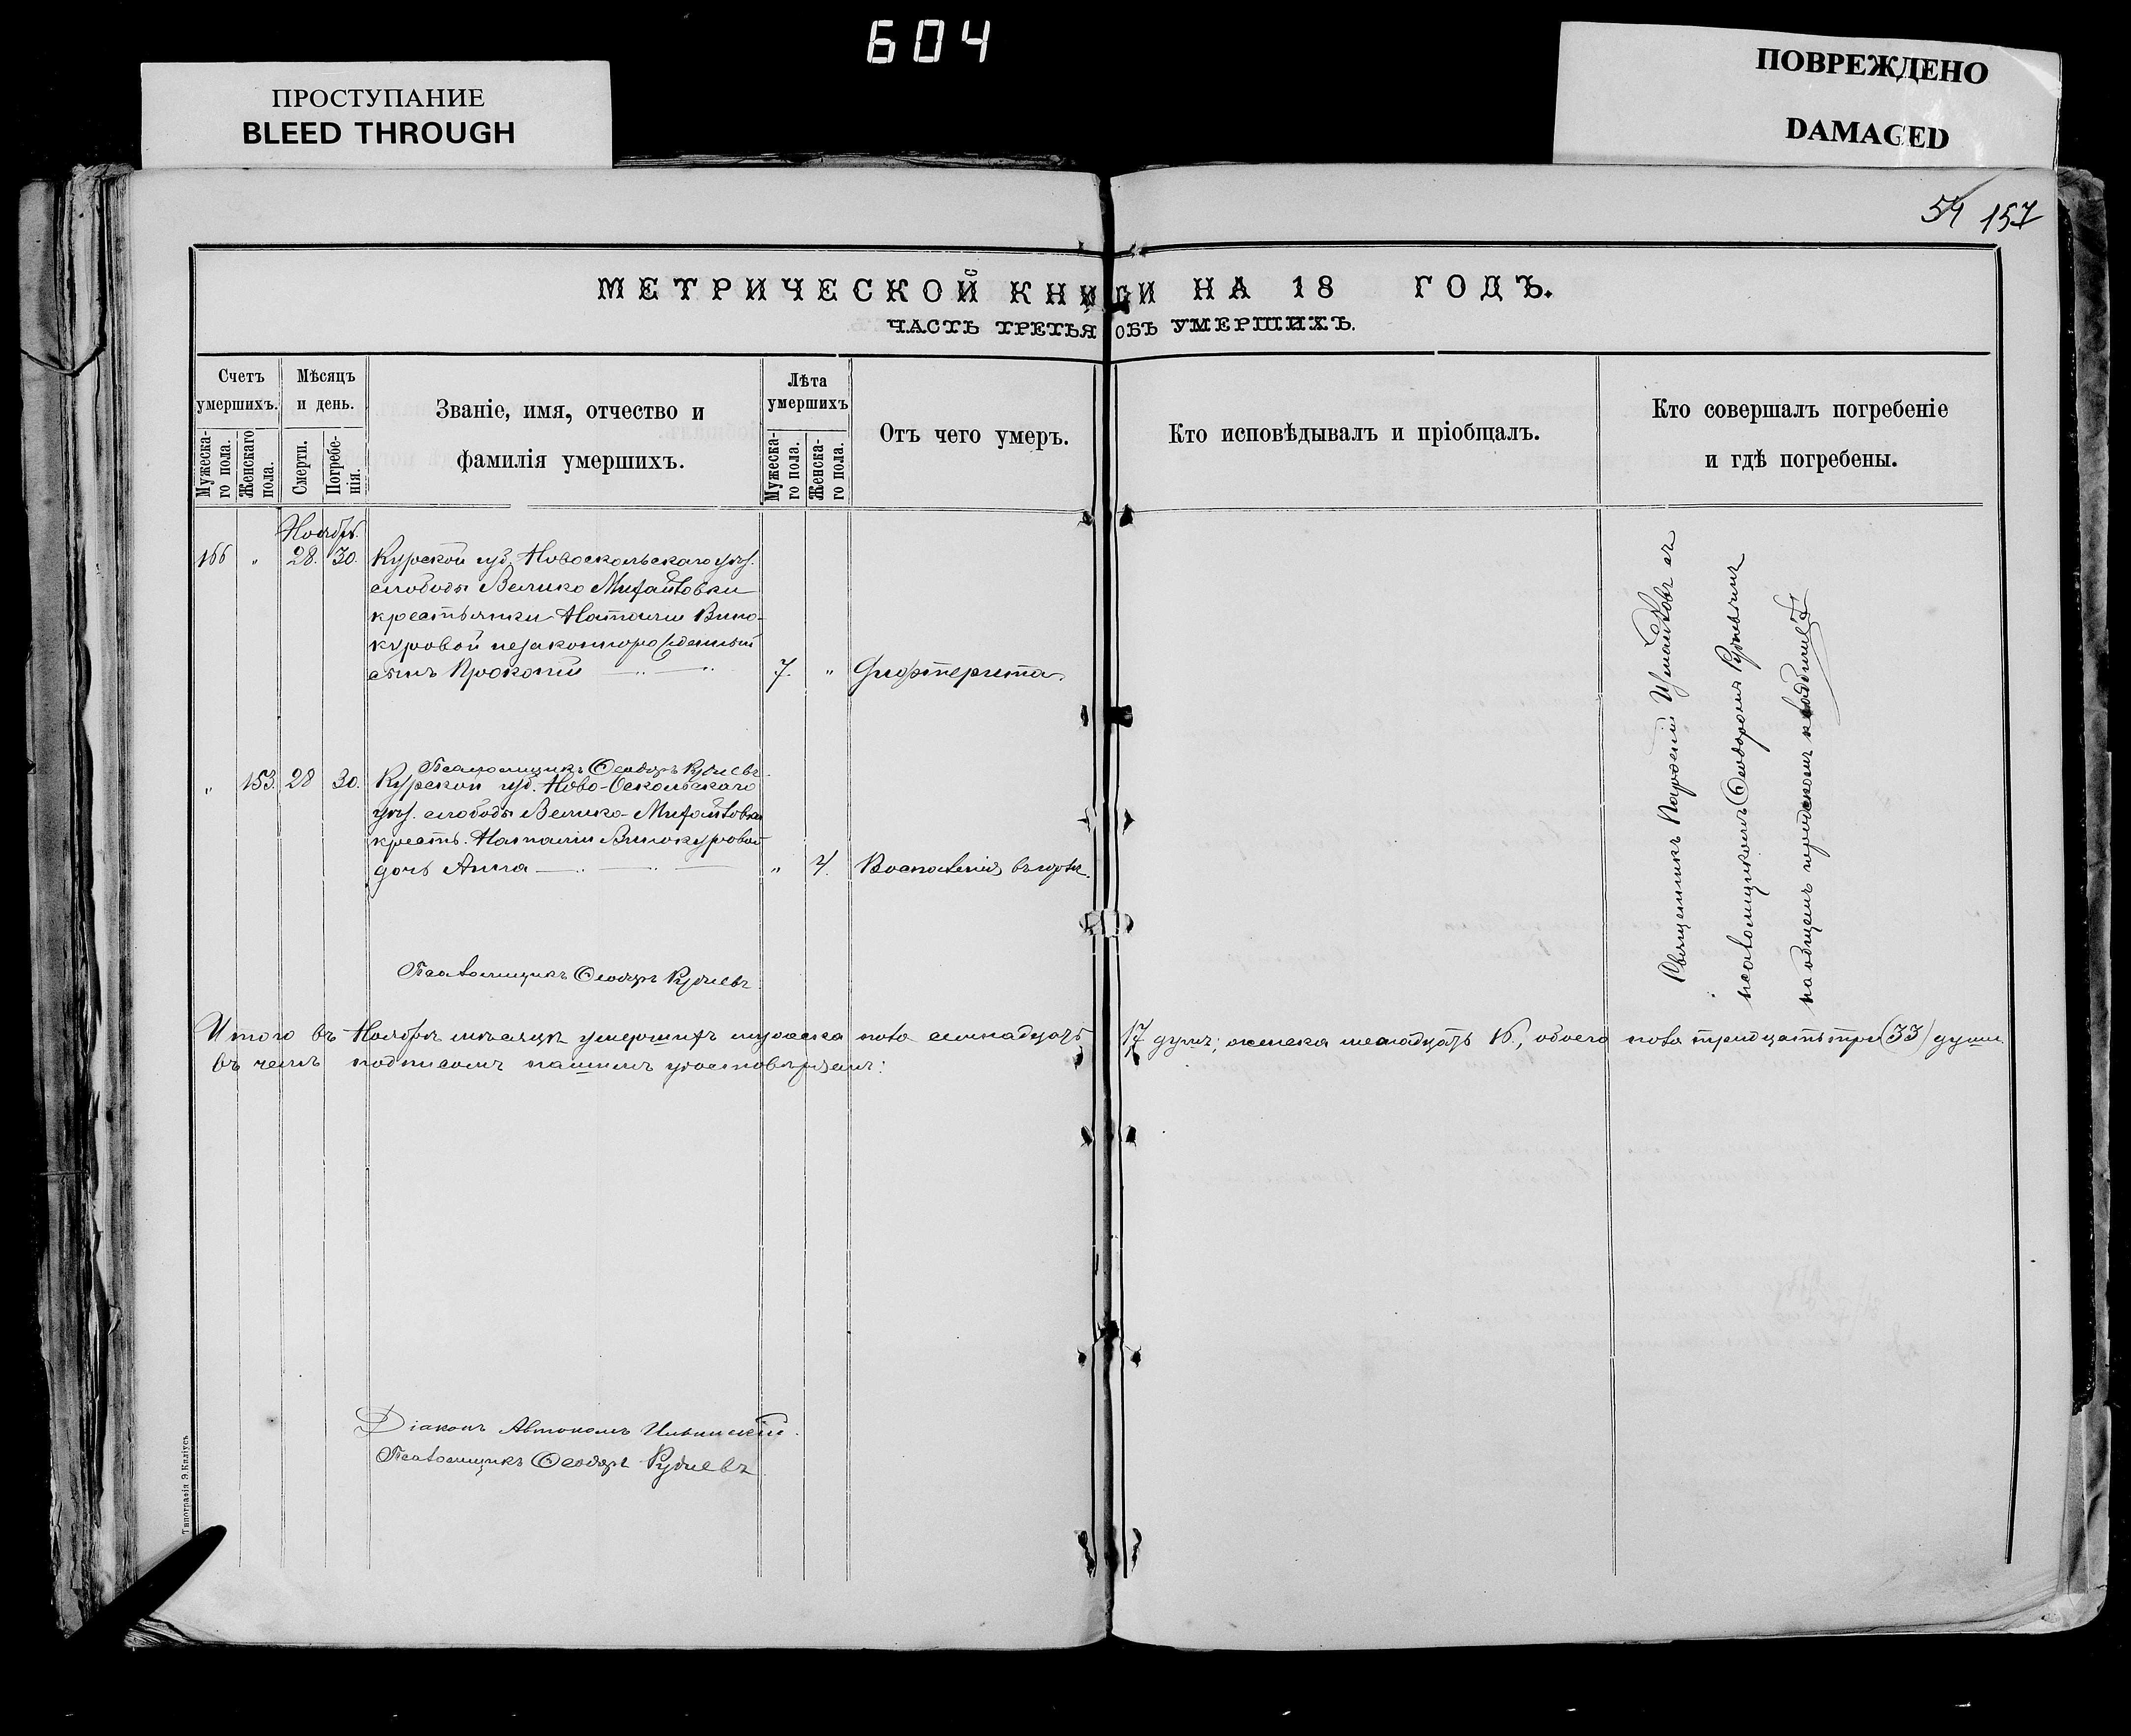 604
ПРОСТУПАНИЕ
BLEED THROUGH
ПОВРЕЖДЕНО
DAMAGED
54 157
МЕТРИЧЕСКОЙ КНИГИ НА 18 ГОДЪ.
ЧАСТЬ ТРЕТЬЯ ОБЪ УМЕРШИХЪ.
Счетъ умершихъ.
Мужеска-го пола.
Женскаго пола.
Мѣсяцъ и день.
Смерти.
Погребе-нія.
Званіе, имя, отчество и
фамилія умершихъ.
Лѣта умершихъ
Мужеска-го пола.
Женска-го пола.
Отъ чего умеръ.
Кто исповѣдывалъ и пріобщалъ.
Кто совершалъ погребеніе
и гдѣ погребены.
Ноябрь.
166 " 28. 30. Курской губ. Новоскольскаго уѣз.
слободы Велико Михайловки
крестьянки Наталіи Вино-
куровой незаконнорожденный
сынъ Прокопій 7. " Дифтерита.
Псаломщикъ Ѳеодоръ Рубчевъ
" 153. 28 30. Курской губ. Ново-Оскольскаго
уѣз. слободы Велико-Михайловки
крестъ. Наталіи Винокуровой
дочь Анна " 4. Воспаленія въ горлѣ.
Псаломщикъ Ѳеодоръ Рубчевъ
Священникъ Парѳеній Измайловъ съ
псаломщикомъ Ѳеодоромъ
на общемъ городскомъ кладбищѣ
Итого въ Ноябрѣ мѣсяцѣ умершихъ мужеска пола семнадцать 17 душъ; женска шестнадцать 16, обоего пола тридцать три (33) души
въ чемъ подписомъ нашимъ удостовѣряемъ:
Діаконъ Автономъ Ильинскій.
Псаломщикъ Ѳеодоръ Рубчевъ
Типографія Э.Каліусъ